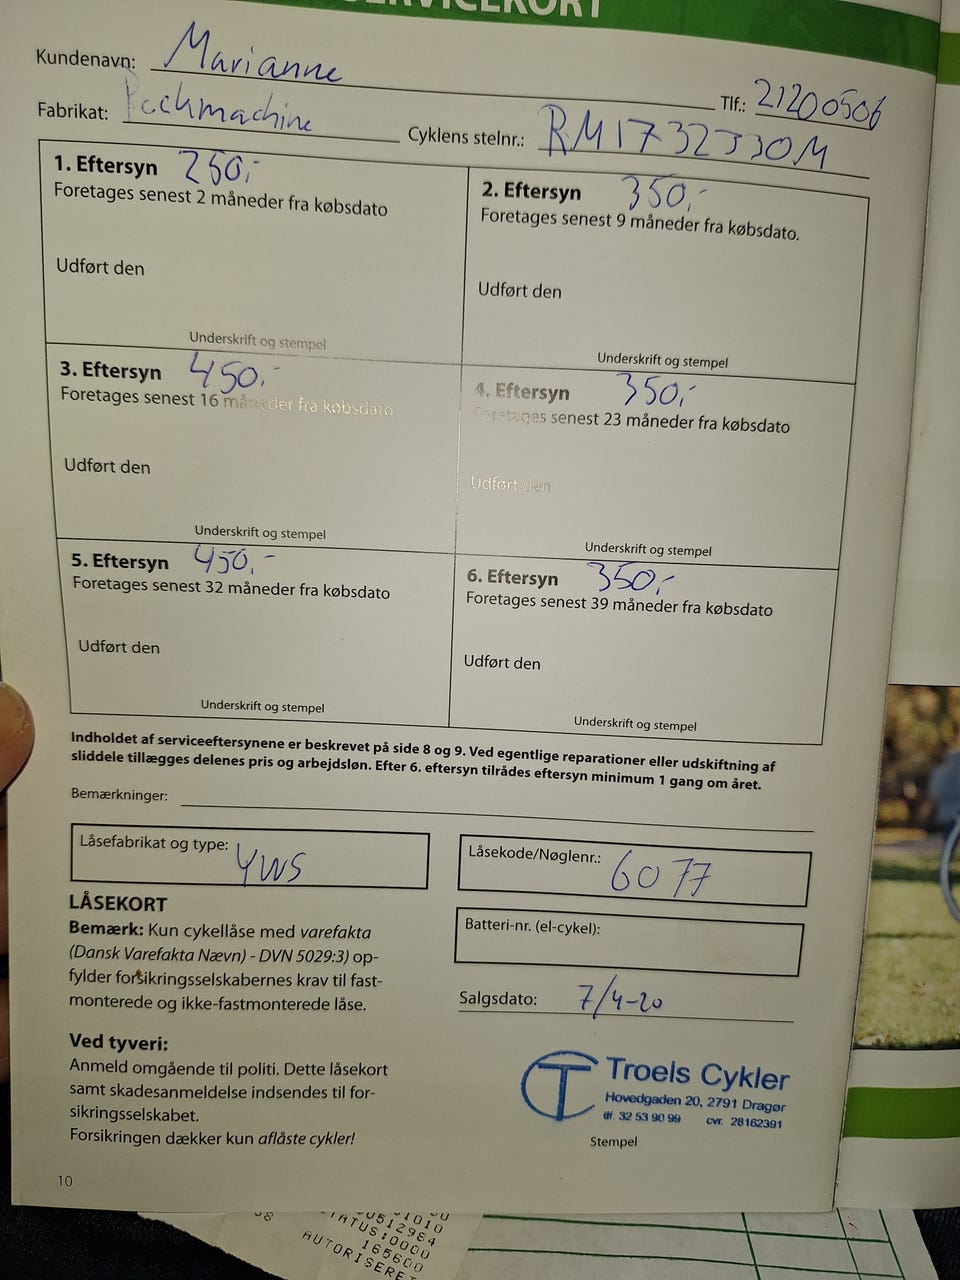 SERVICEKORT
Kundenavn: Marianne
Tlf.: 21200506
Fabrikat: Rockmachine
Cyklens stelnr.: RM1732JJ0M
1. Eftersyn 250,-
Foretages senest 2 måneder fra købsdato
Udført den
Underskrift og stempel
2. Eftersyn 350,-
Foretages senest 9 måneder fra købsdato.
Udført den
Underskrift og stempel
3. Eftersyn 450,-
Foretages senest 16 måneder fra købsdato
Udført den
Underskrift og stempel
4. Eftersyn 350,-
Foretages senest 23 måneder fra købsdato
Udført den
Underskrift og stempel
5. Eftersyn 450,-
Foretages senest 32 måneder fra købsdato
Udført den
Underskrift og stempel
6. Eftersyn 350,-
Foretages senest 39 måneder fra købsdato
Udført den
Underskrift og stempel
Indholdet af serviceeftersynene er beskrevet på side 8 og 9. Ved egentlige reparationer eller udskiftning af
sliddele tillægges delenes pris og arbejdsløn. Efter 6. eftersyn tilrådes eftersyn minimum 1 gang om året.
Bemærkninger:
Låsefabrikat og type: YWS
Låsekode/Nøglenr.: 6077
LÅSEKORT
Bemærk: Kun cykellåse med varefakta
(Dansk Varefakta Nævn) - DVN 5029:3) op-
fylder forsikringsselskabernes krav til fast-
monterede og ikke-fastmonterede låse.
Batteri-nr. (el-cykel):
Salgsdato: 7/4-20
Ved tyveri:
Anmeld omgående til politi. Dette låsekort
samt skadesanmeldelse indsendes til for-
sikringsselskabet.
Forsikringen dækker kun aflåste cykler!
Troels Cykler
Hovedgaden 20, 2791 Dragør
tlf. 32 53 90 99 cvr. 28162391
Stempel
10
165600